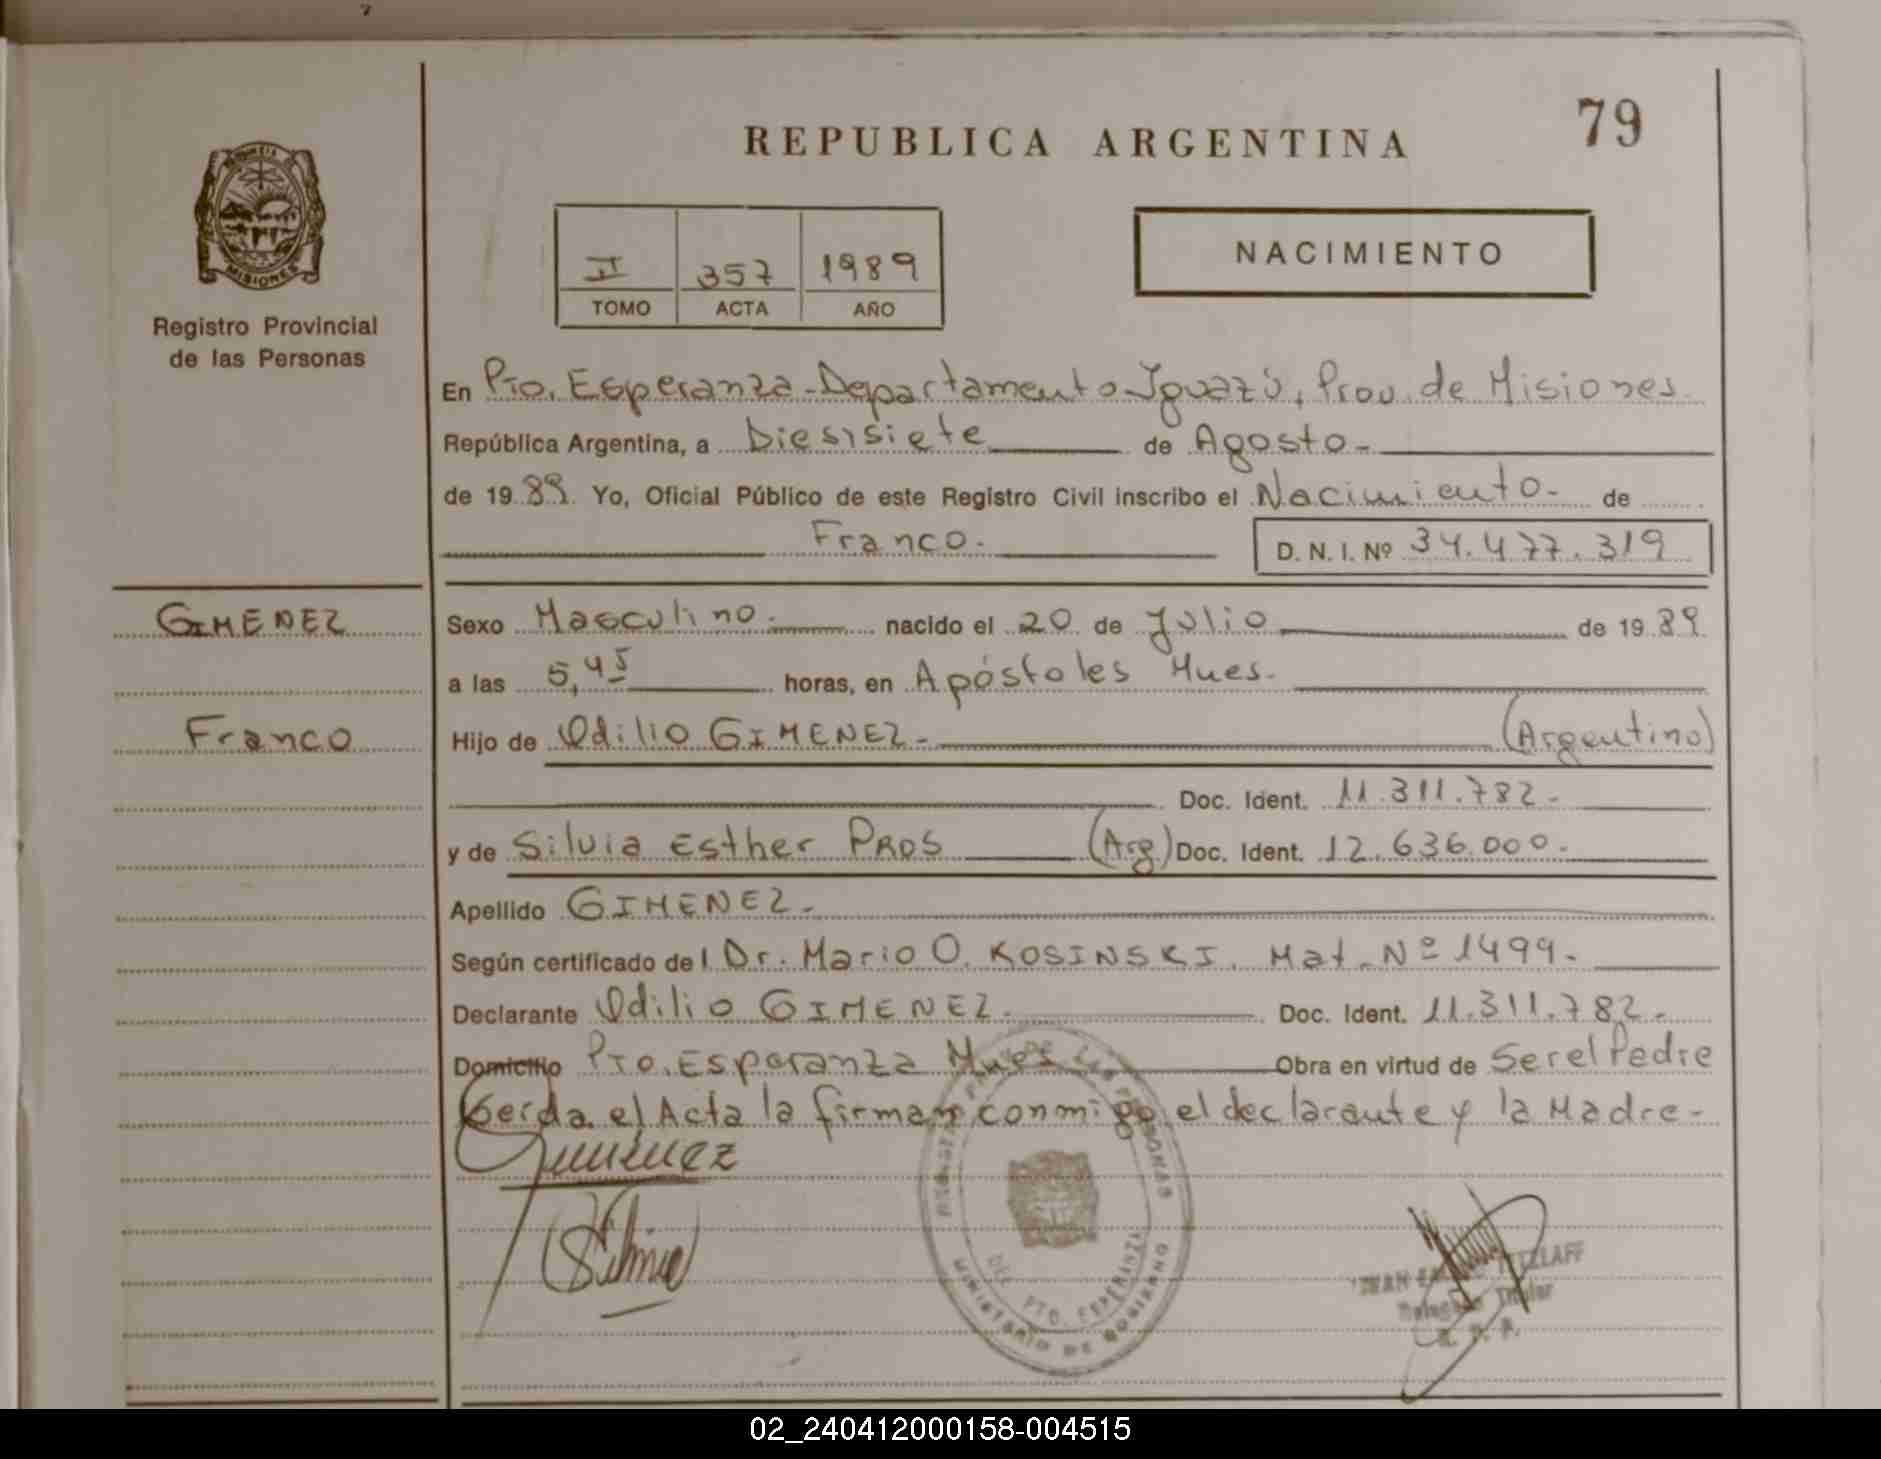 79
REPUBLICA ARGENTINA
MISIONES
Registro Provincial
de las Personas
II 357 1989
TOMO ACTA AÑO
NACIMIENTO
En Pto. Esperanza - Departamento Iguazú, Prov. de Misiones
República Argentina, a Diesisiete de Agosto -
de 1989. Yo, Oficial Público de este Registro Civil inscribo el Nacimiento - de
Franco.
D. N. I. Nº 34.477.319
GIMENEZ
Sexo Masculino. nacido el 20 de Julio de 1989
a las 5,45 horas, en Apóstoles Mnes.
Franco
Hijo de Odilio GIMENEZ - (Argentino)
Doc. Ident. 11.311.782 -
y de Silvia Esther PROS (Arg) Doc. Ident. 12.636.000.
Apellido GIMENEZ -
Según certificado del Dr. Mario O. KOSINSKI. Mat. Nº 1499 -
Declarante Odilio GIMENEZ. Doc. Ident. 11.311.782 -
Domicilio Pto. Esperanza Mnes Obra en virtud de Ser el Padre
el Acta la firman conmigo el declarante y la Madre -
Gimenez
Silvia
PTO. ESPERANZA
MINISTERIO DE GOBIERNO
Titular
02_240412000158-004515